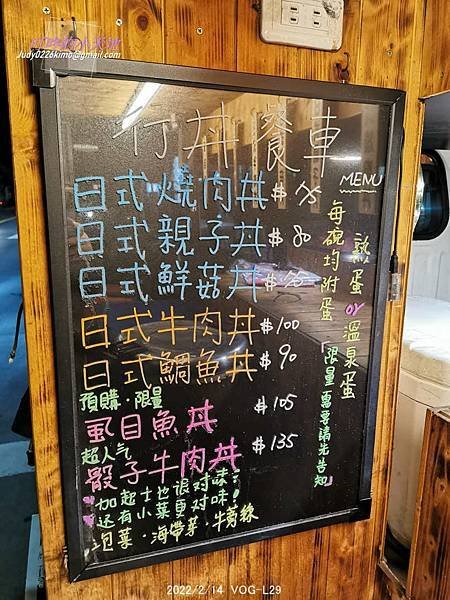 Judy0226kimo@gmail.com
行丼餐車
MENU
日式燒肉丼 $95
日式親子丼 $80
日式鮮菇丼
日式牛肉丼 $100
日式鯛魚丼 $90
預購·限量
虱目魚丼 $105
超人气
骰子牛肉丼 $135
加起士也很对味
还有小菜更对味
泡菜·海帶芽·牛蒡絲
每碗均附蛋
熟蛋or溫泉蛋
「限量需要請先告知」
2022/2/14 VOG-L29